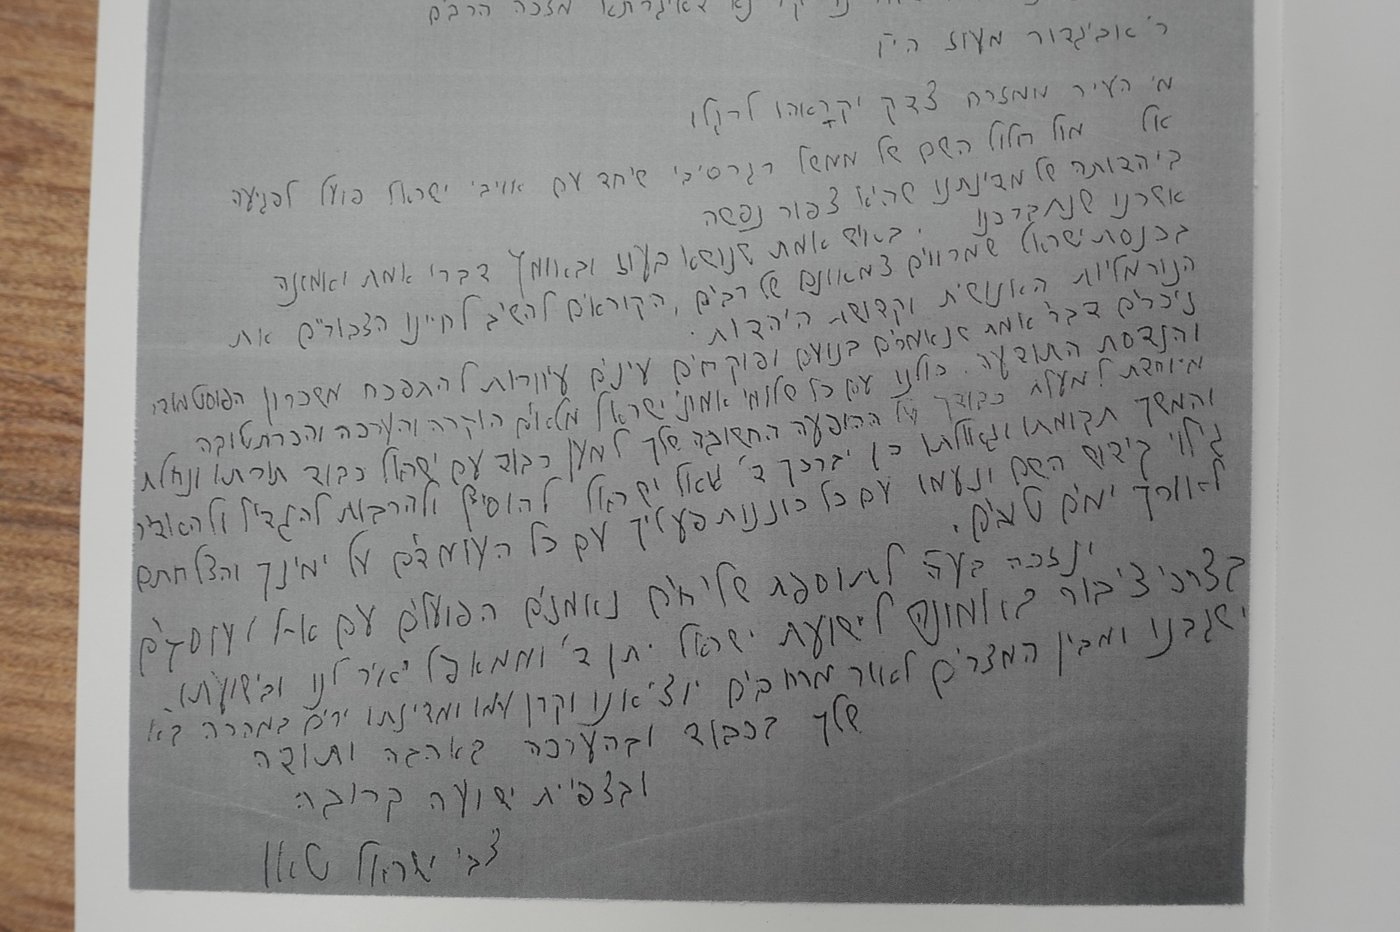 מזכה הרבים
ר' אביגדור מעוז הי"ו
מי העיר ממזרח צדק יקראהו לרגלו
אל מול חלול השם של ממשל רגרסיבי שיחד עם אויבי ישראל פועל לפגיעה
ביהדותה של מדינתנו שהיא צפור נפשה
אשרנו שנתברכנו באיש אמת שנושא בעוז ובאומץ דברי אמת ואמונה
בכנסת ישראל שמרווים צמאונם של רבים, הקוראים להשיב לחיינו הצבוריים את
הנורמליות האנושית וקדושת היהדות.
ניכרים דברי אמת שנאמרים בנועם ופוקחים עינים עיוורות להתפכח משכרון הפוסטמודרני
והנדסת התודעה. כולנו עם כל שלומי אמוני ישראל מלאים הוקרה והערכה והכרת טובה
מיוחדת למעלת כבודך על ההופעה החשובה שלך למען כבוד עם ישראל כבוד תורתו ונחלתו
והמשך תקומתו וגאולתו כן יברכך ד' גואל ישראל להוסיף ולהרבות להגדיל ולהאדיר
גילוי קידוש השם ונעמו עם כל כוננות פעליך עם כל העומדים על ימינך והצלחתם
לאורך ימים טובים.
ונזכה בע"ה לתוספת שליחים נאמנים הפועלים עם א-ל ועוסקים
בצרכי ציבור באמונה לישועת ישראל יתן ד' וממאפל יאיר לנו ובישועתו
ישגבנו ומבין המצרים לאור מרחבים יוציאנו וקרן עמו ומדינתו ירים במהרה בא
שלך בכבוד ובהערכה באהבה ותודה
ובצפיית ישועה קרובה
צבי ישראל טאו